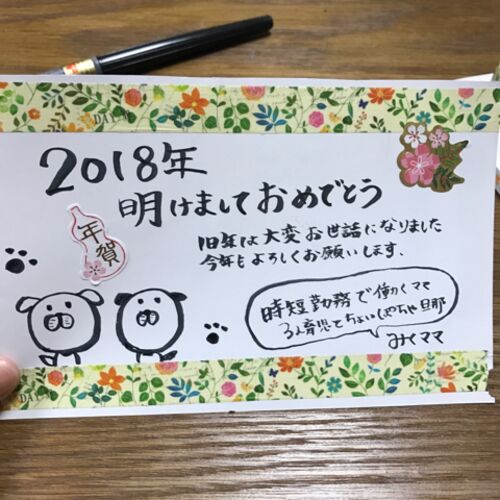 2018年
明けましておめでとう
年賀
旧年は大変お世話になりました
今年もよろしくお願いします。
時短勤務で働くママ
3人育児とちょいしゃちゃ旦那
みくママ